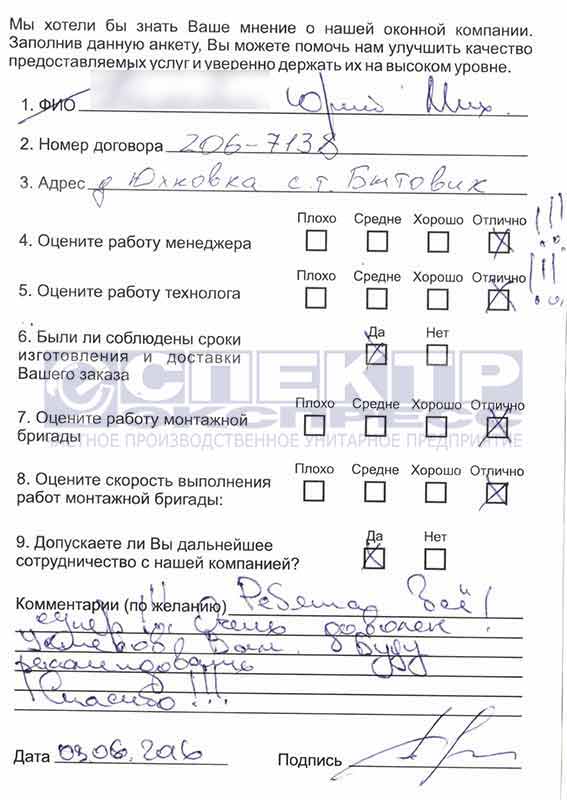 Мы хотели бы знать Ваше мнение о нашей оконной компании.
Заполнив данную анкету, Вы можете помочь нам улучшить качество
предоставляемых услуг и уверенно держать их на высоком уровне.
1. ФИО Юрий Мих.
2. Номер договора 206-7138
3. Адрес д Юхновка с.т. Бытовик
Плохо Средне Хорошо Отлично !!!
4. Оцените работу менеджера
Плохо Средне Хорошо Отлично !!!
5. Оцените работу технолога
6. Были ли соблюдены сроки Да Нет
изготовления и доставки
Вашего заказа
СПЕКТР
ЭКСПРЕСС
ЧАСТНОЕ ПРОИЗВОДСТВЕННОЕ УНИТАРНОЕ ПРЕДПРИЯТИЕ
Плохо Средне Хорошо Отлично
7. Оцените работу монтажной
бригады
Плохо Средне Хорошо Отлично
8. Оцените скорость выполнения
работ монтажной бригады:
9. Допускаете ли Вы дальнейшее Да Нет
сотрудничество с нашей компанией?
Комментарии (по желанию) Ребята Всё!
супер !!! Очень доволен!
Успехов Вам. Буду
рекомендовать
Спасибо!!!
Дата 03.06.2016 Подпись